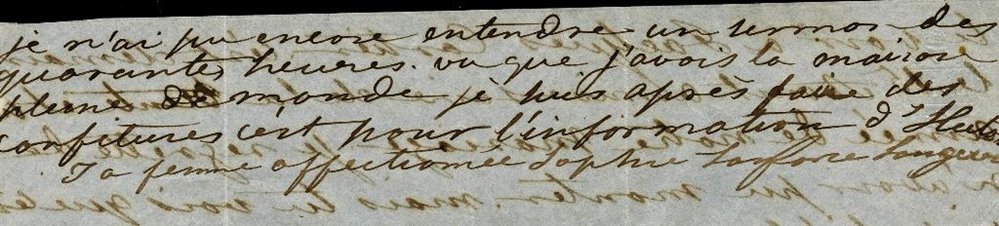 je n'ai pu encore entendre un sermon des
quarantes heures. vu que j'avois la maison
pleine de monde je suis après faire des
confitures c'est pour l'information d'
Ta femme affectionnée Sophie